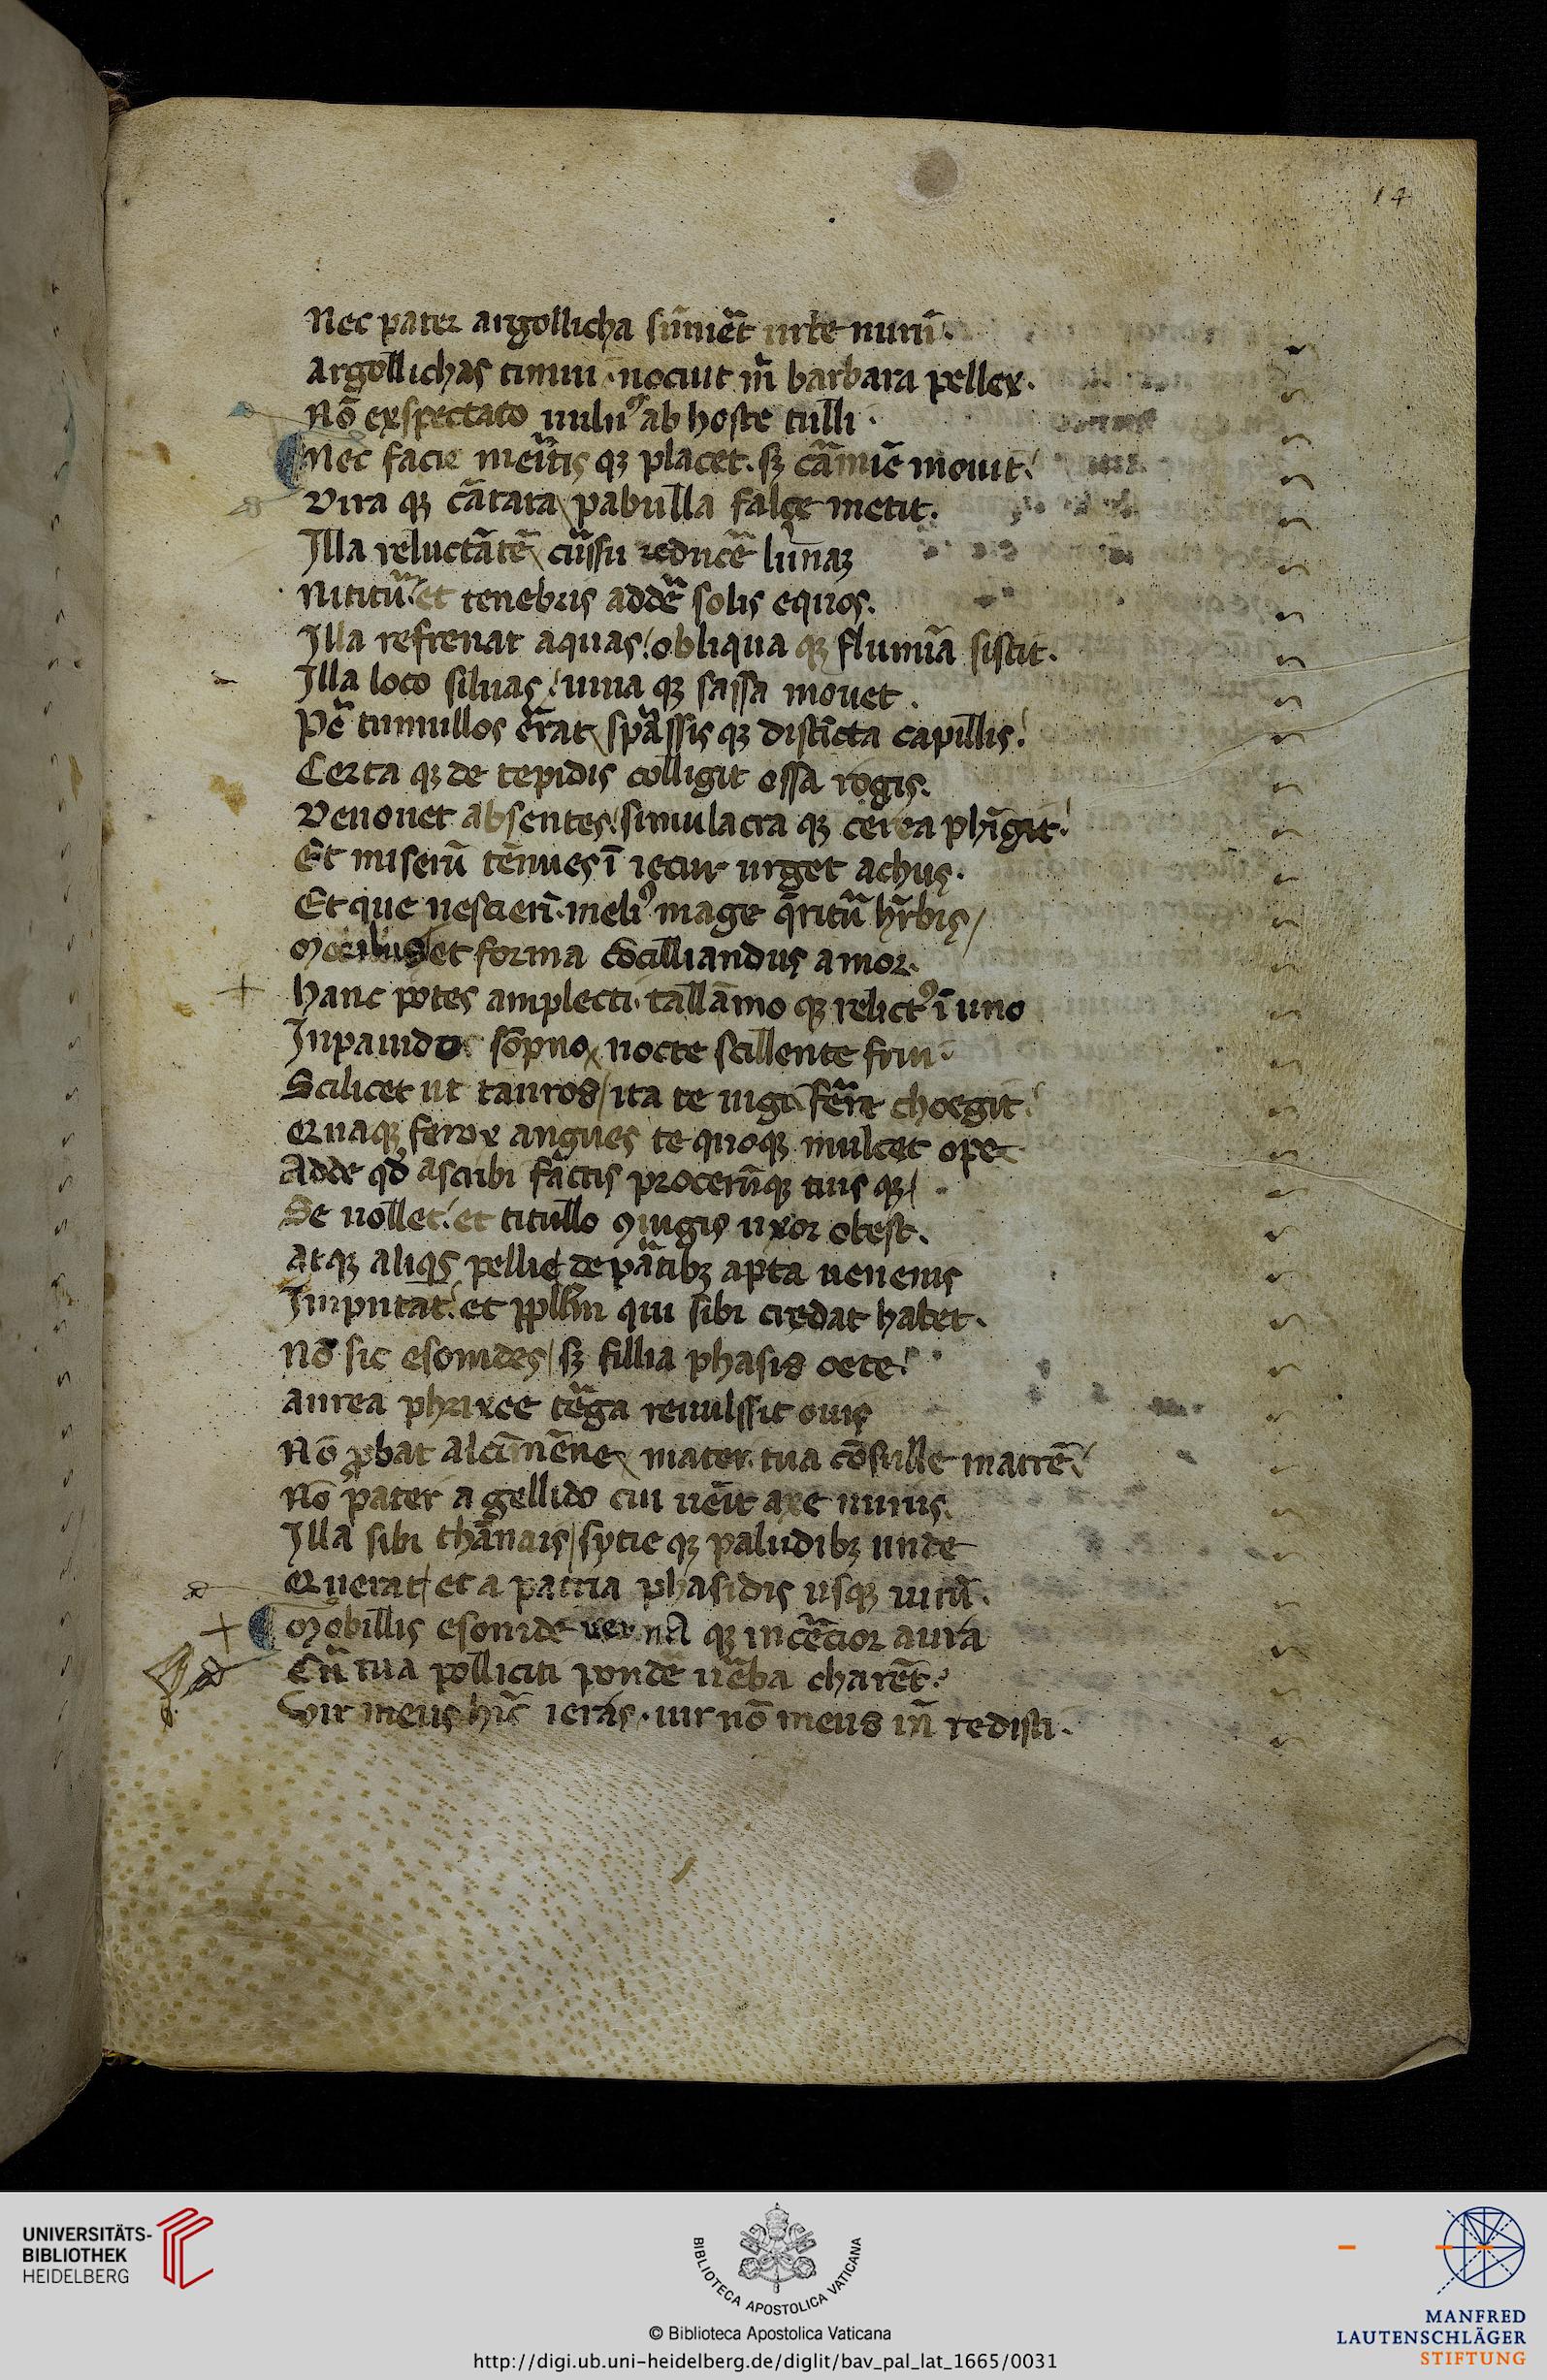 14
Nec pater argollicha sūmēt urbe nurū.
Argollichas timui. nociuit m̄ barbara pellex.
Nō exspectato uuln⁹ ab hoste tulli.
Nec facie meritis qꝫ placet. sꝫ cāmīe mouit.
Dira qꝫ cātata pabulla falce metit.
Illa reluctātē cursu reducē lunaꝫ
Nititur et tenebris addē solis equos.
Illa refrenat aquas / obliqua qꝫ flumīa sistit.
Illa loco siluas / uiua qꝫ sassa mouet.
Pē tumullos ērat spassis qꝫ distīcta capillis.
Certa qꝫ de tepidis colligit ossa rogis.
Deuouet absentes / simulacra qꝫ cerea phīgit.
Et miserū tēnues ī iecur urget achus.
Et que nescierī. meli⁹ mage q̄ritur hērbis /
Moribus et forma ↄ̄cilliandus amor.
Hanc potes amplecti. tallāmo qꝫ relict⁹ ī uno
Inpauidus sōpno nocte scillente frui.
Scilicet ut tauros / ita te iuga ferre choegit.
Quaqꝫ ferox angues te quoqꝫ mulcet ope
Adde qd̄ ascribi factis procerūqꝫ tuis qꝫ /
Se uollet. et titullo ꝯiugis uxor obest.
Atqꝫ aliqs pellie de partibꝫ apta uenenis
Imputat. et ppl̄lm qui sibi credat habet.
Nō sic esonides / sꝫ fillia phasis oete.
Aurea phrixee tēga reuulssit ouis
Nō ꝓbat alcimēne mater. tua cōsulle matrē /
Nō pater a gellido cui uēit axe nurus.
Illa sibi thānais / sytie qꝫ paludibꝫ unde
Querat / et a patria phasidis usqꝫ uirū.
Mobillis esonide uerna qꝫ incētior aura
Cū tua polliciti pondē uēba charēt.
Vir meus hīc ieras. uir nō meus īn redisti.
UNIVERSITÄTS-
BIBLIOTHEK
HEIDELBERG
BIBLIOTECA APOSTOLICA VATICANA
© Biblioteca Apostolica Vaticana
http://digi.ub.uni-heidelberg.de/diglit/bav_pal_lat_1665/0031
MANFRED
LAUTENSCHLÄGER
STIFTUNG